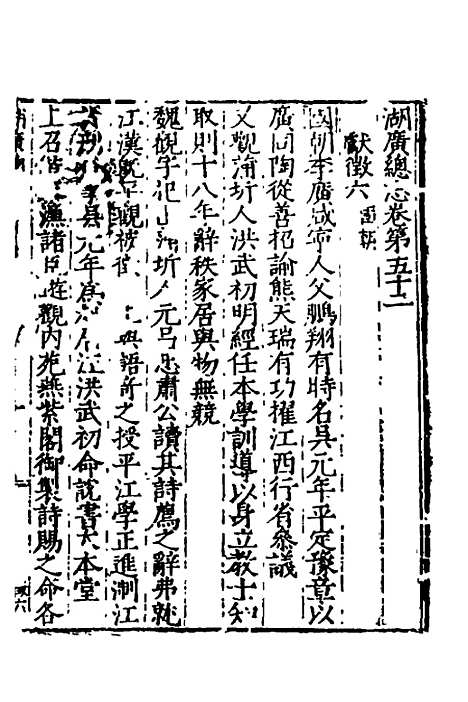 湖廣總志卷第五十二
獻徵六 國朝
國朝李廣咸寧人父鵬翔有時名吳元年平定豫章以
廣同陶從善招諭熊天瑞有功擢江西行省參議
文觀蒲圻人洪武初明經任本學訓導以身立教士知
取則十八年辭秩家居與物無競
魏觀字杞山蒲圻人元 忠肅公讀其詩薦之辭弗就
江漢既平觀被 與語奇之授平江學正進浙江
縣元年 洪武初命說書大本堂
上召 諸臣遊觀內苑燕紫閣御製詩賜之命各